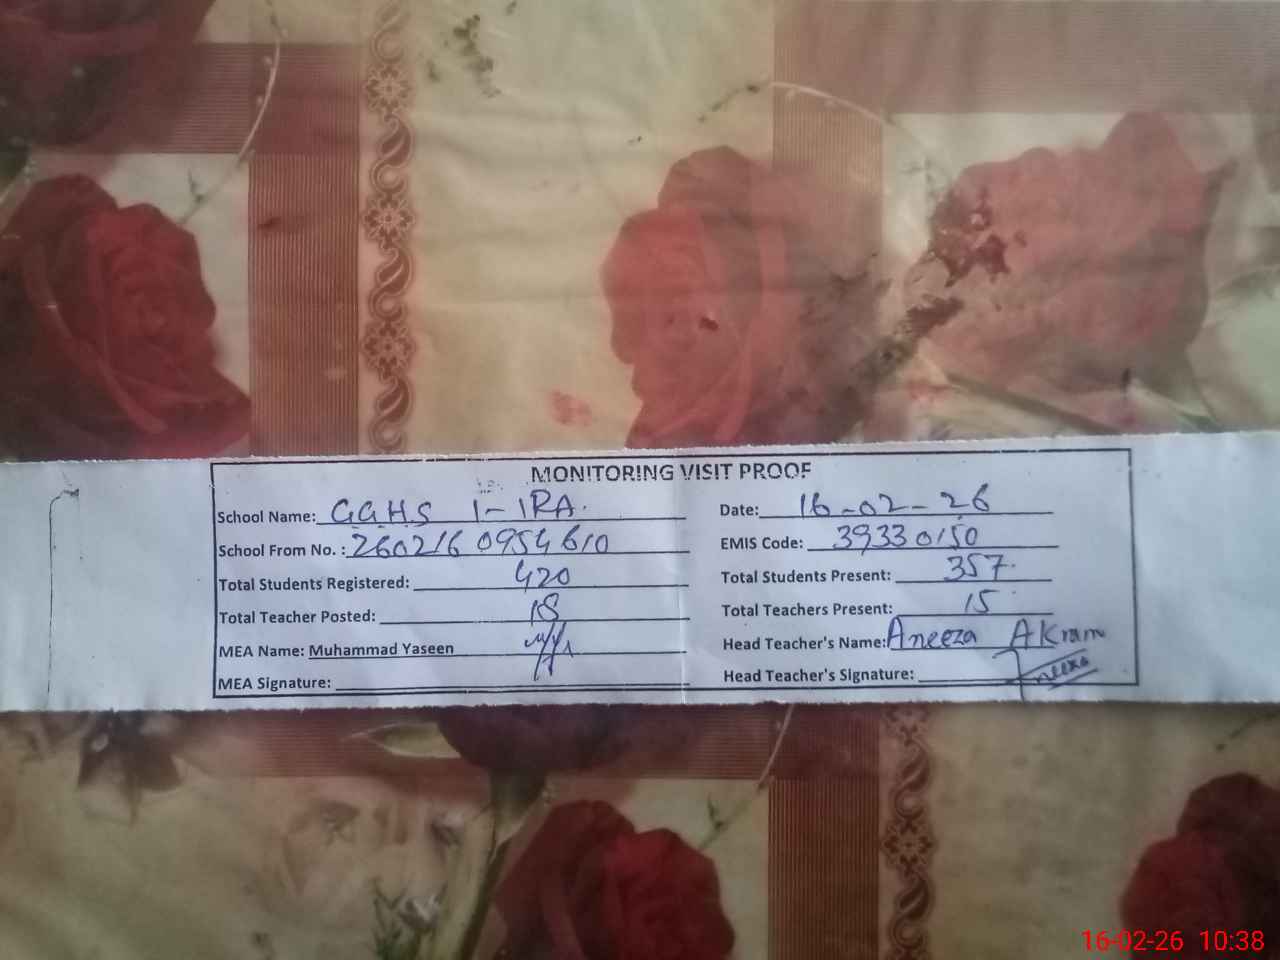 MONITORING VISIT PROOF
School Name: GGHS 1-1RA. Date: 16-02-26
School From No. : 260216 0954610 EMIS Code: 39330150
Total Students Registered: 420 Total Students Present: 357
Total Teacher Posted: 18 Total Teachers Present: 15
MEA Name: Muhammad Yaseen Head Teacher's Name: Aneeza Akram
MEA Signature: Head Teacher's Signature: Aneeza
16-02-26 10:38